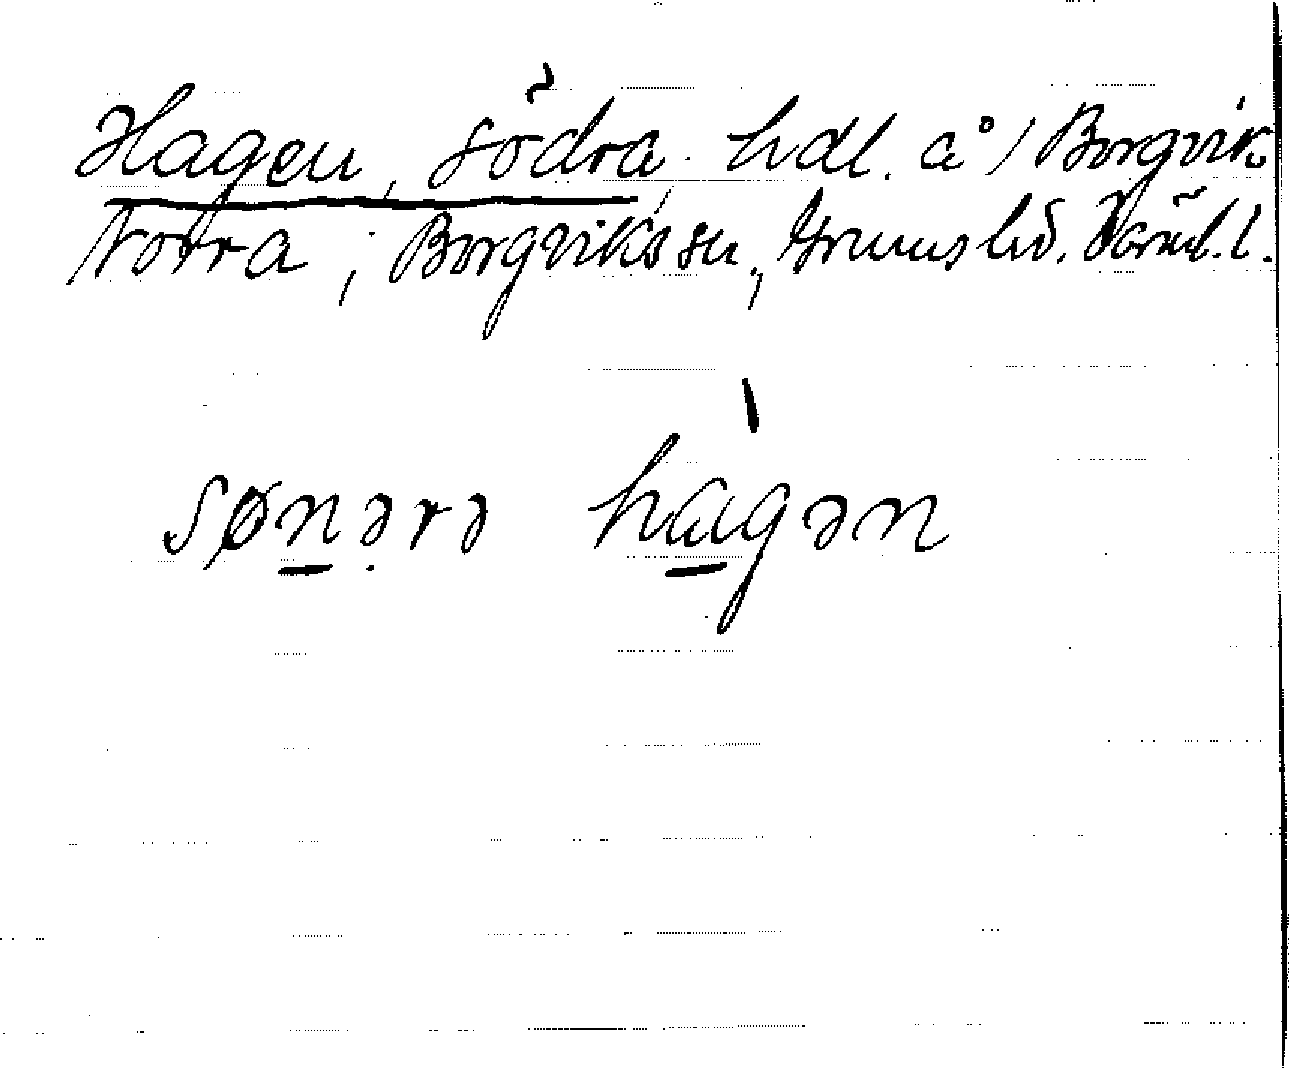 Hagen, södra hdl. å / Borgvik
Norra, Borgviks sn, Grums hd. Värml. l.
sønərə hagən